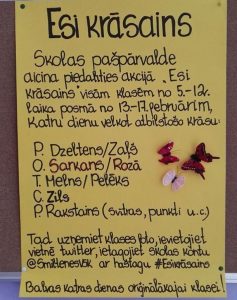 Esi krāsains
Skolas pašpārvalde
aicina piedalīties akcijā "Esi
krāsains" visām klasēm no 5.-12.
laika posmā no 13.-17.februārim,
Katru dienu velkot atbilstošo krāsu:
P. Dzeltens/Zaļš
O. Sarkans/Rozā
T. Melns/Pelēks
C. Zils
P. Rakstains (svītras, punkti u.c)
Tad uzņemiet klases foto, ievietojiet
vietnē twitter, ietagojiet skolas kontu
@Smiltenesvsk ar haštagu #Esikrāsains
Balvas katras dienas oriģinālākajai klasei!